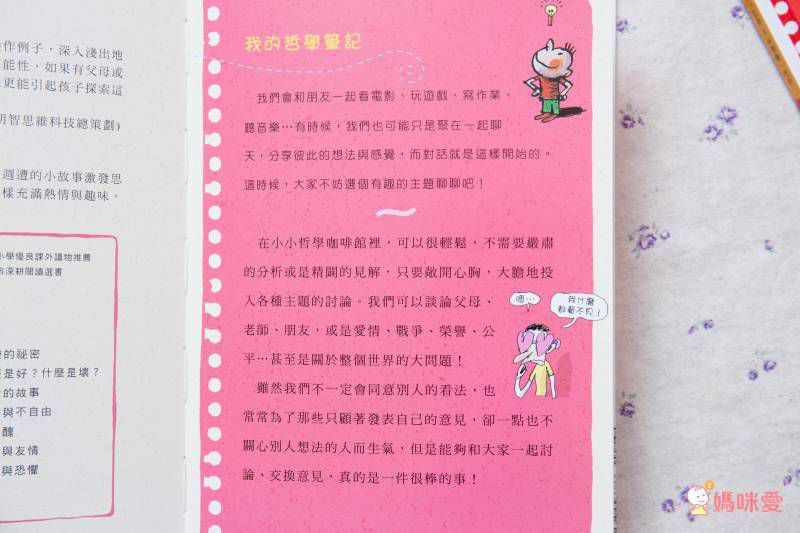 作例子，深入淺出地
能性，如果有父母或
更能引起孩子探索這
明智思維科技總策劃)
週遭的小故事激發思
樣充滿熱情與趣味。
小學優良課外讀物推薦
市深耕閱讀選書
的祕密
是好？什麼是壞？
的故事
與不自由
醜
與友情
與恐懼
我的哲學筆記
我們會和朋友一起看電影、玩遊戲、寫作業、
聽音樂…有時候，我們也可能只是聚在一起聊
天，分享彼此的想法與感覺，而對話就是這樣開始的。
這時候，大家不妨選個有趣的主題聊聊吧！
在小小哲學咖啡館裡，可以很輕鬆，不需要嚴肅
的分析或是精闢的見解，只要敞開心胸，大膽地投
入各種主題的討論。我們可以談論父母、
老師、朋友，或是愛情、戰爭、榮譽、公
平…甚至是關於整個世界的大問題！
嗯…
我什麼
都看不見！
雖然我們不一定會同意別人的看法，也
常常為了那些只顧著發表自己的意見，卻一點也不
關心別人想法的人而生氣，但是能夠和大家一起討
論、交換意見，真的是一件很棒的事！
媽咪愛